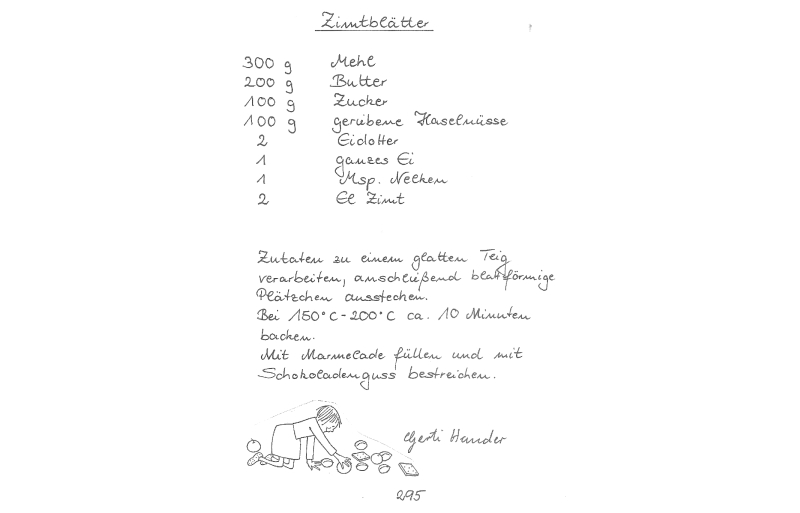 Zimtblätter
300 g Mehl
200 g Butter
100 g Zucker
100 g geriebene Haselnüsse
2 Eidotter
1 ganzes Ei
1 Msp. Nelken
2 El Zimt
Zutaten zu einem glatten Teig
verarbeiten, anschließend blattförmige
Plätzchen ausstechen.
Bei 150°C - 200°C ca. 10 Minuten
backen.
Mit Marmelade füllen und mit
Schokoladenguss bestreichen.
Gerti Hander
295